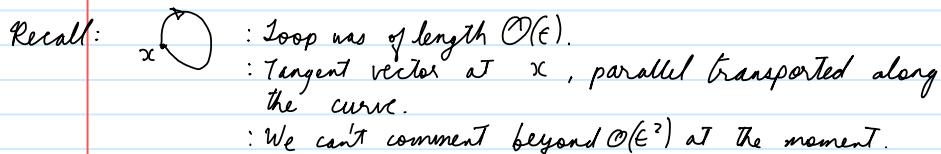 Recall: x : Loop was of length O(ε).
: Tangent vector at x, parallel transported along
the curve.
: We can't comment beyond O(ε²) at the moment.